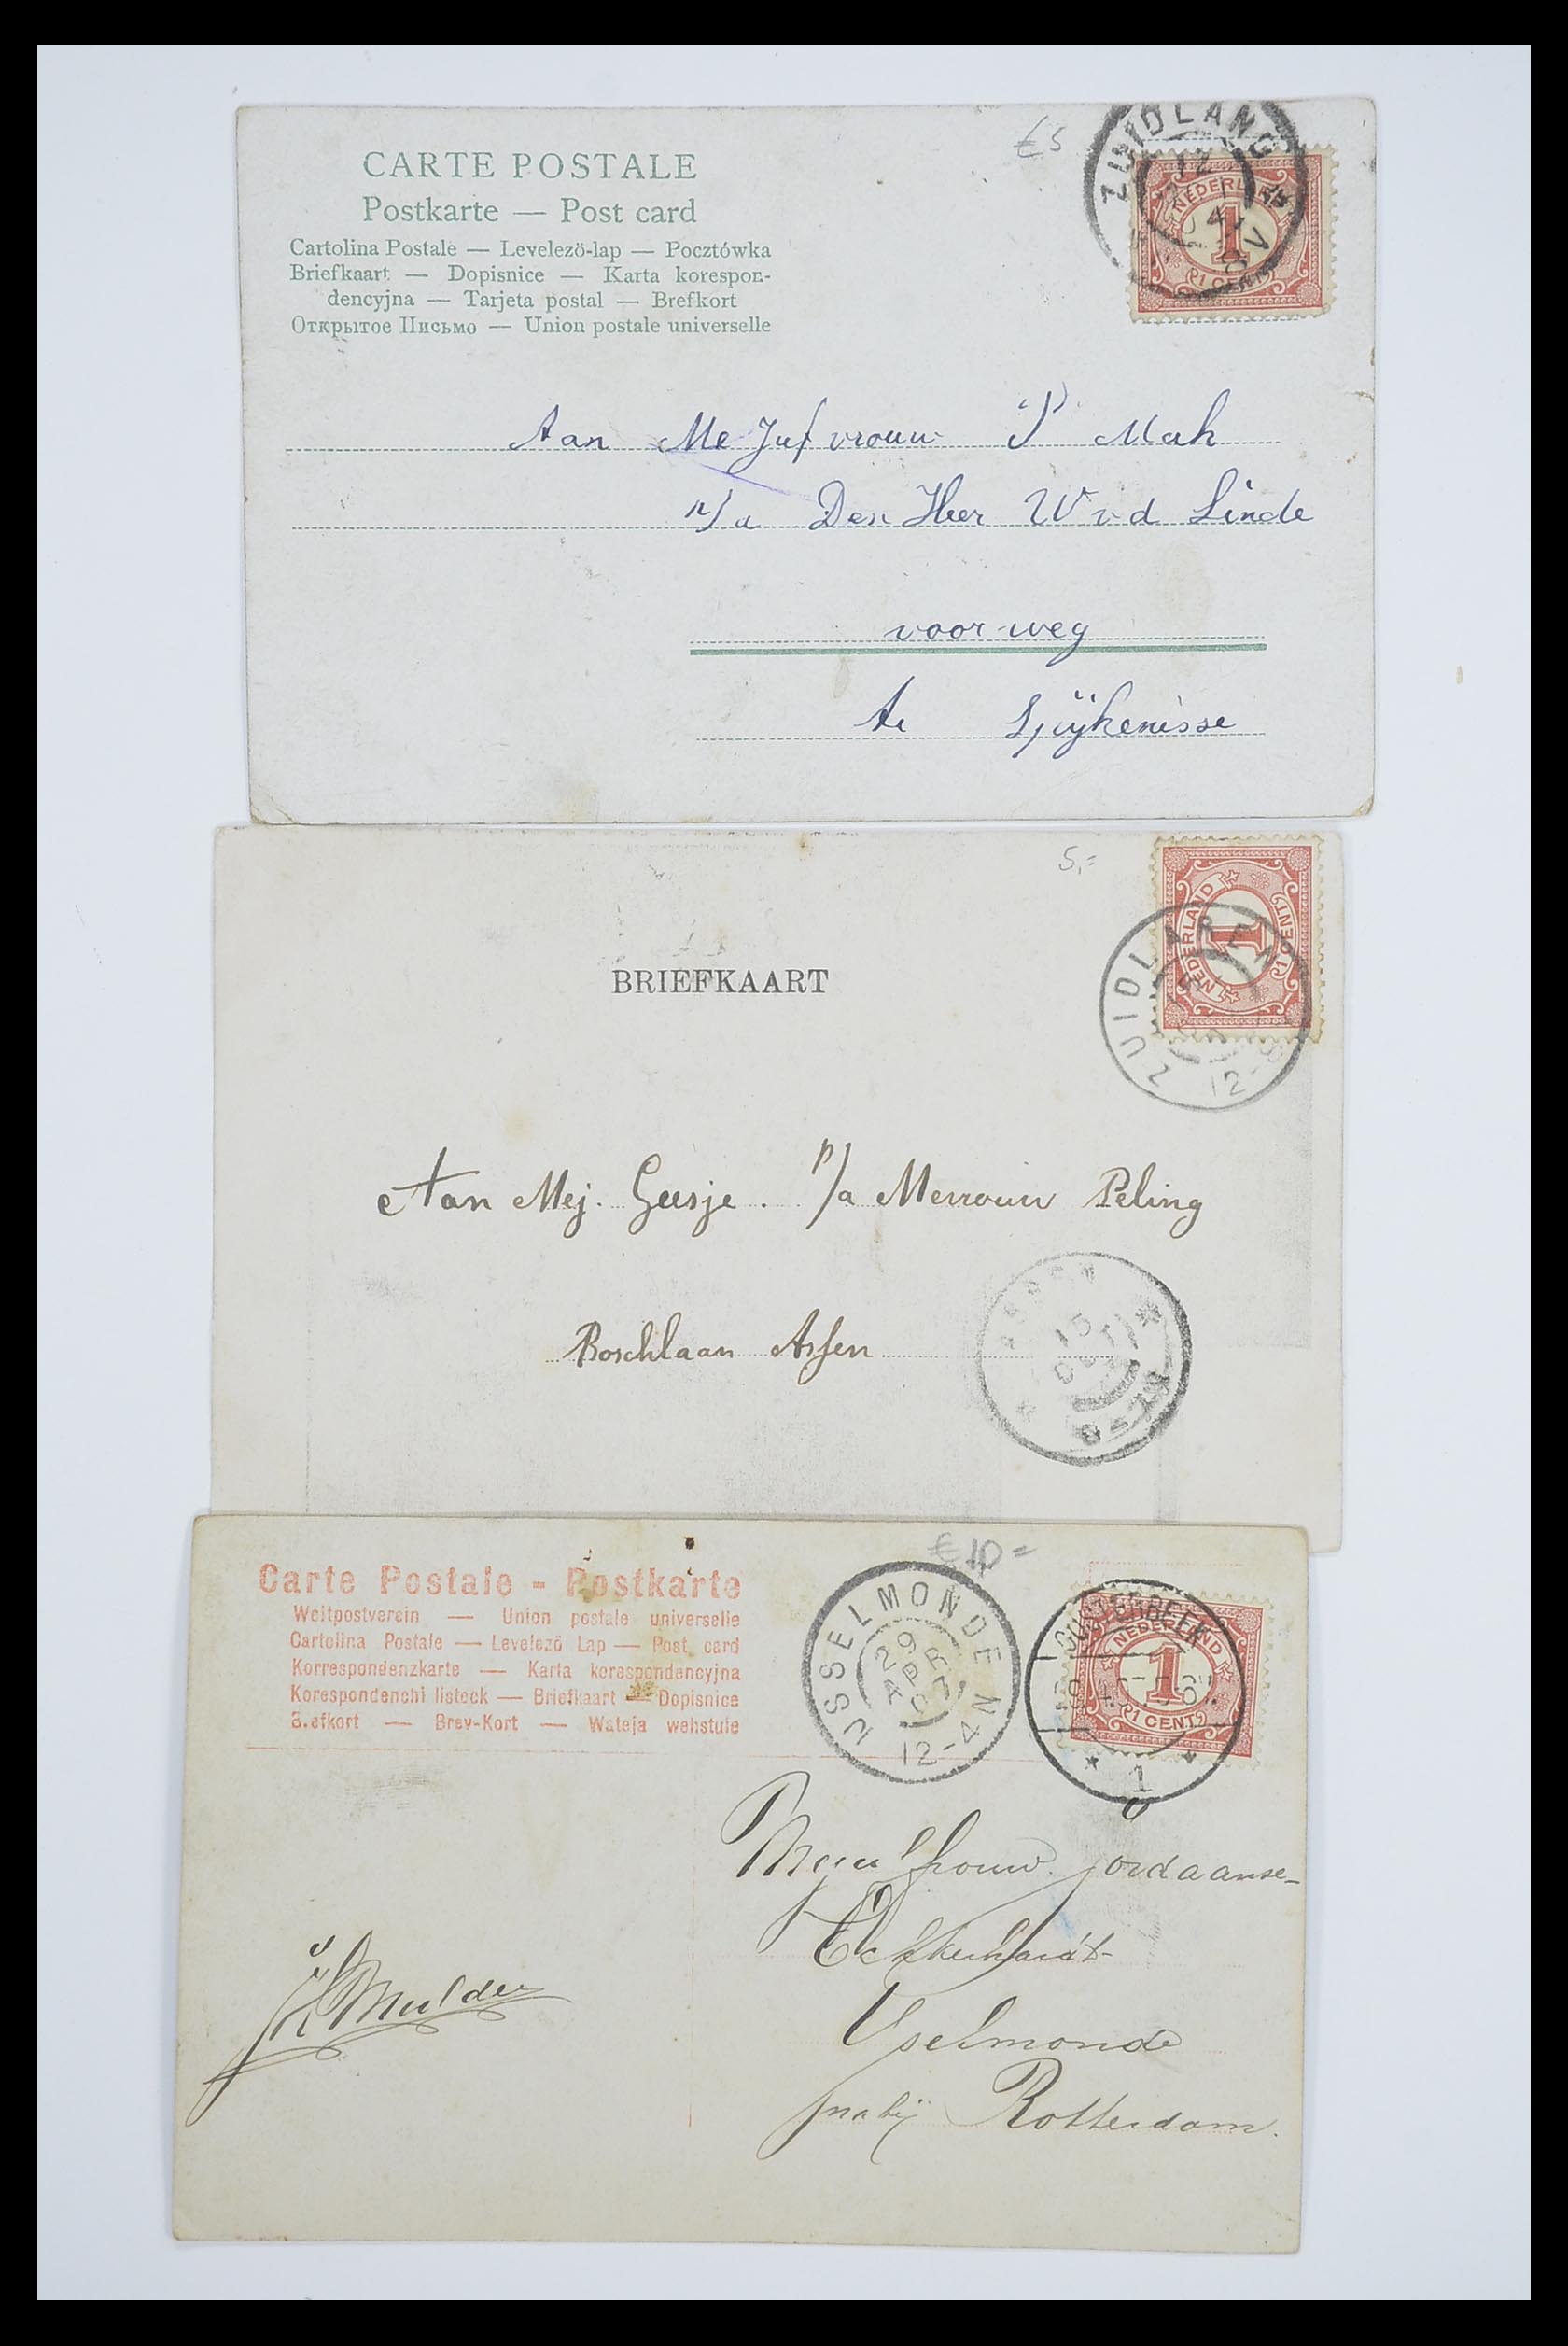 €5
CARTE POSTALE
Postkarte — Post card
Cartolina Postale — Levelező-lap — Pocztówka
Briefkaart — Dopisnice — Karta korespon-
dencyjna — Tarjeta postal — Brefkort
Открытое Письмо — Union postale universelle
ZUIDLAND
NEDERLAND
1
1 CENT
Aan Mejufvrouw P Mak
p/a Den Heer W v d Linde
voorweg
te Spijkenisse
5,=
BRIEFKAART
NEDERLAND
1
1 CENT
ZUIDLAREN
12-8
Aan Mej. Geesje. p/a Mevrouw Peling
Boschlaan Assen
15
Carte Postale - Postkarte
Weltpostverein — Union postale universelle
Cartolina Postale — Levelező Lap — Post card
Korrespondenzkarte — Karta korespondencyjna
Korespondenchi listeck — Briefkaart — Dopisnice
Brefkort — Brev-Kort — Wateja wehstule
€ 10=
IJSSELMONDE
29
APR
07
12-4 N
OOSTERBEEK
NEDERLAND
1
1 CENT
1
Mejufvrouw Jordaanse-
Eckkerhardt
IJselmonde
nabij Rotterdam.
Mulder